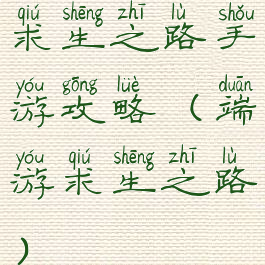 qiú shēng zhī lù shǒu
求生之路手
yóu gōng lüè duān
游攻略（端
yóu qiú shēng zhī lù
游求生之路
）